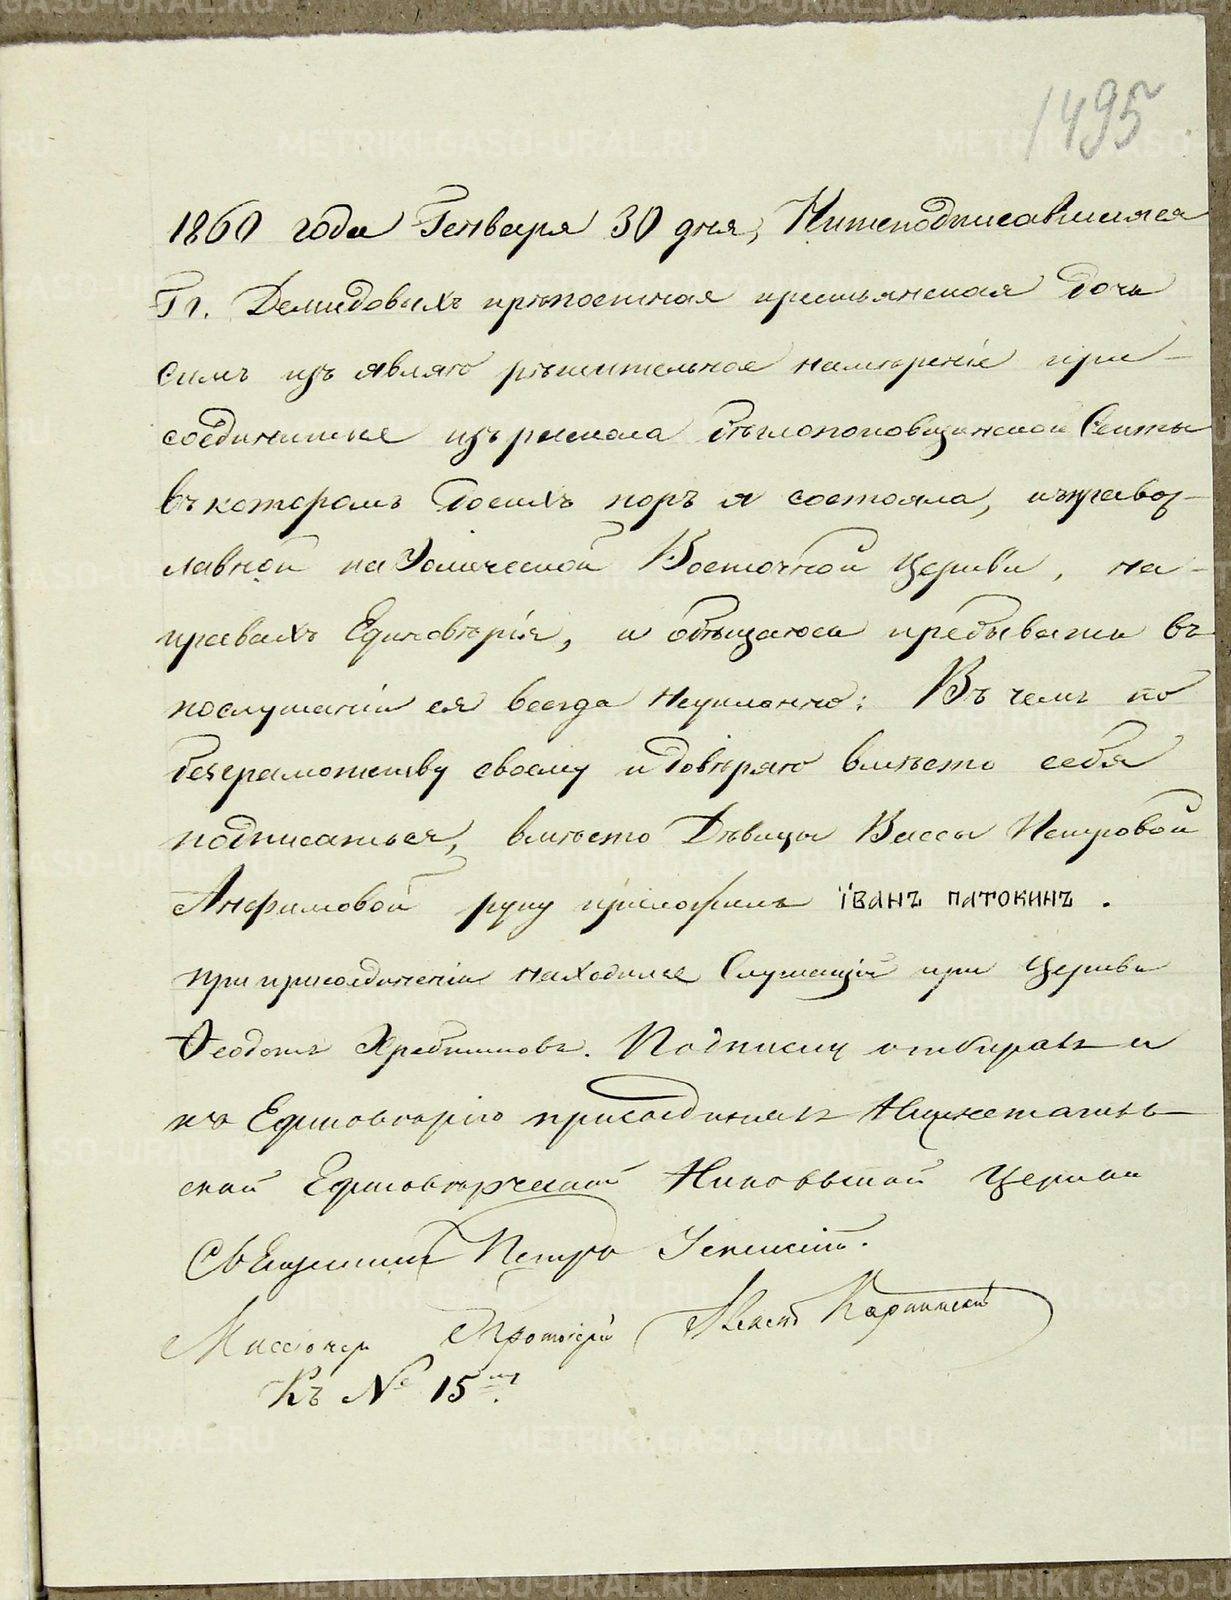 1495
1860 года Генваря 30 дня, Нижеподписавшаяся
Гг. Демидовыхъ крѣпостная крестьянская дочь
симъ изъявляю рѣшительное намѣреніе при-
соединиться изъ раскола бѣглопоповщинской Секты
въ которомъ досихъ поръ я состояла, къ правос-
лавной каѳолической Восточной Церкви, на
правахъ Единовѣрія, и обѣщаюсь пребывать въ
послушаніи ея всегда неуклонно: Въ чемъ по
безграмотству своему и довѣряю вмѣсто себя
подписаться, вмѣсто Дѣвицы Вассы Петровой
Анфимовой руку приложилъ їванъ патокинъ.
при присоединеніи находился Служащій при Церкви
Ѳеодотъ Хребтиковъ. Подписку отбиралъ и
къ Единовѣрію присоединялъ Нижнетагиль-
ской Единовѣрческой Николаевской Церкви
Священникъ Петръ
Миссіонер Протоіерей
Къ № 15му.
METRIKI.GASO-URAL.RU